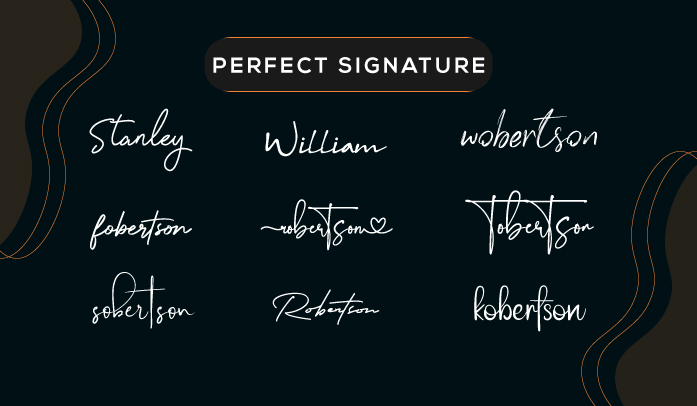 PERFECT SIGNATURE
Stanley William wobertson
fobertson robertson Tobertson
sobertson Robertson kobertson